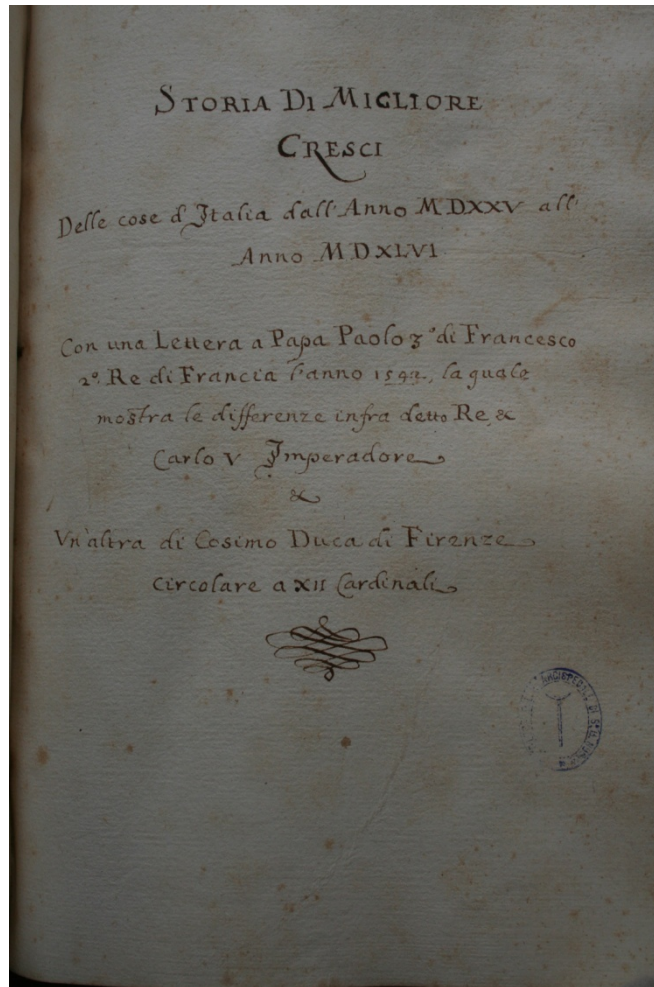 STORIA DI MIGLIORE
CRESCI
Delle cose d'Italia dall'Anno MDXXV all'
Anno MDXLVI
Con una Lettera a Papa Paolo 3º di Francesco
2º. Re di Francia l'anno 1542., la quale
mostra le differenze infra detto Re, &
Carlo V Imperadore
&
Vn'altra di Cosimo Duca di Firenze
Circolare a XII Cardinali